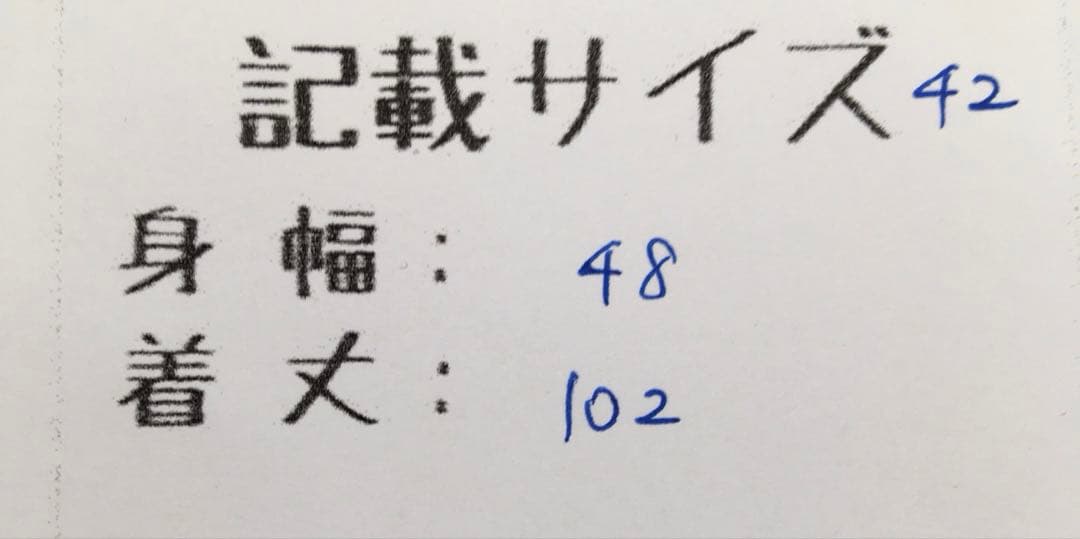 記載サイズ 42
身幅： 48
着丈： 102